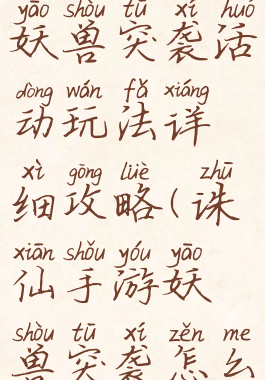 yāo shòu tū xí huó
妖兽突袭活
dòng wán fǎ xiáng
动玩法详
xì gōng lüè zhū
细攻略(诛
xiān shǒu yóu yāo
仙手游妖
shòu tū xí zěn me
兽突袭怎么